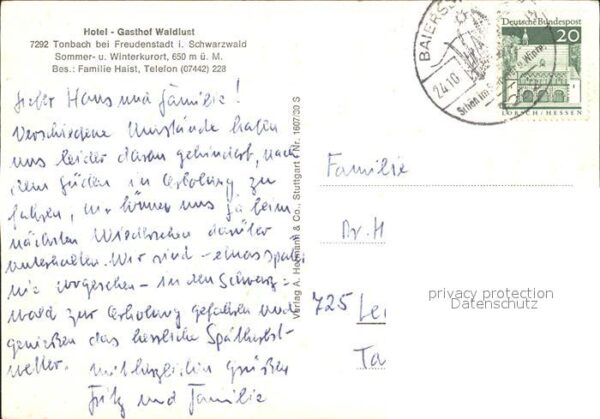 Hotel - Gasthof Waldlust
7292 Tonbach bei Freudenstadt i. Schwarzwald
Sommer- u. Winterkurort, 650 m ü. M.
Bes.: Familie Haist, Telefon (07442) 228
Lieber Hans und Familie!
Verschiedene Umstände haben
uns leider daran gehindert, nach
dem Süden in Erholung zu
fahren, wir können uns ja beim
nächsten Wiedersehen darüber
unterhalten. Wir sind - etwas später
wie vorgesehen - in den Schwarz=
wald zur Erholung gefahren und
genießen das herrliche Spätherbst-
wetter. Mit herzlichen Grüßen
Fritz und Familie
Verlag A. Hermann & Co., Stuttgart · Nr. 1607/30 S
BAIERS
24.10
Deutsche Bundespost
20
LORSCH/HESSEN
Familie
Dr. H
725 Leo
Ta
privacy protection
Datenschutz